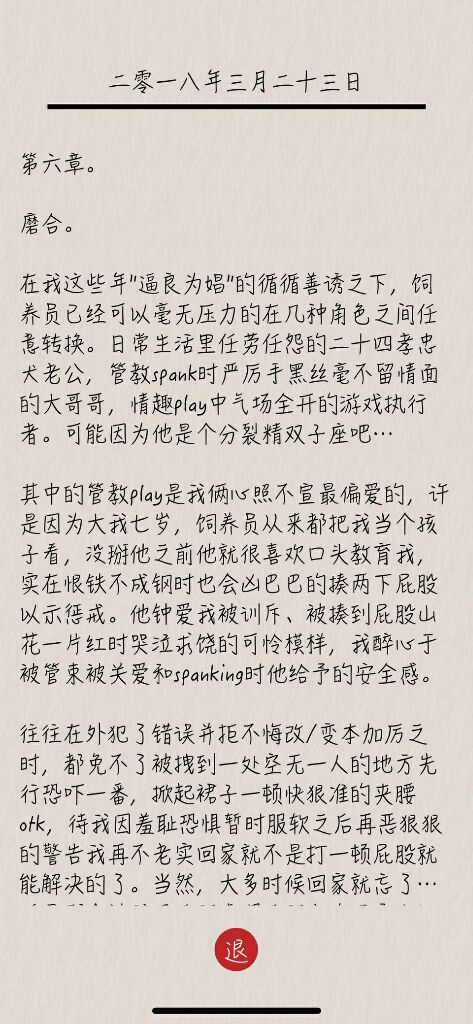 二零一八年三月二十三日
第六章。
磨合。
在我这些年"逼良为娼"的循循善诱之下，饲
养员已经可以毫无压力的在几种角色之间任
意转换。日常生活里任劳任怨的二十四孝忠
犬老公，管教spank时严厉手黑丝毫不留情面
的大哥哥，情趣play中气场全开的游戏执行
者。可能因为他是个分裂精双子座吧…
其中的管教play是我俩心照不宣最偏爱的，许
是因为大我七岁，饲养员从来都把我当个孩
子看，没掰他之前他就很喜欢口头教育我，
实在恨铁不成钢时也会凶巴巴的揍两下屁股
以示惩戒。他钟爱我被训斥、被揍到屁股山
花一片红时哭泣求饶的可怜模样，我醉心于
被管束被关爱和spanking时他给予的安全感。
往往在外犯了错误并拒不悔改/变本加厉之
时，都免不了被拽到一处空无一人的地方先
行恐吓一番，掀起裙子一顿快狠准的夹腰
otk，待我因羞耻恐惧暂时服软之后再恶狠狠
的警告我再不老实回家就不是打一顿屁股就
能解决的了。当然，大多时候回家就忘了…
退